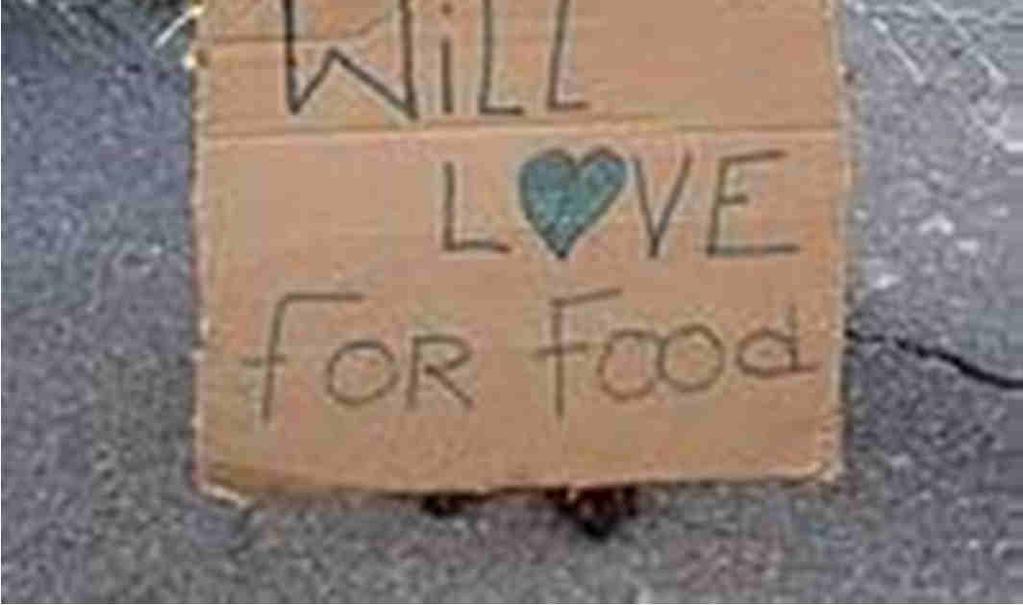 WiLL
L♥VE
FOR FOOd